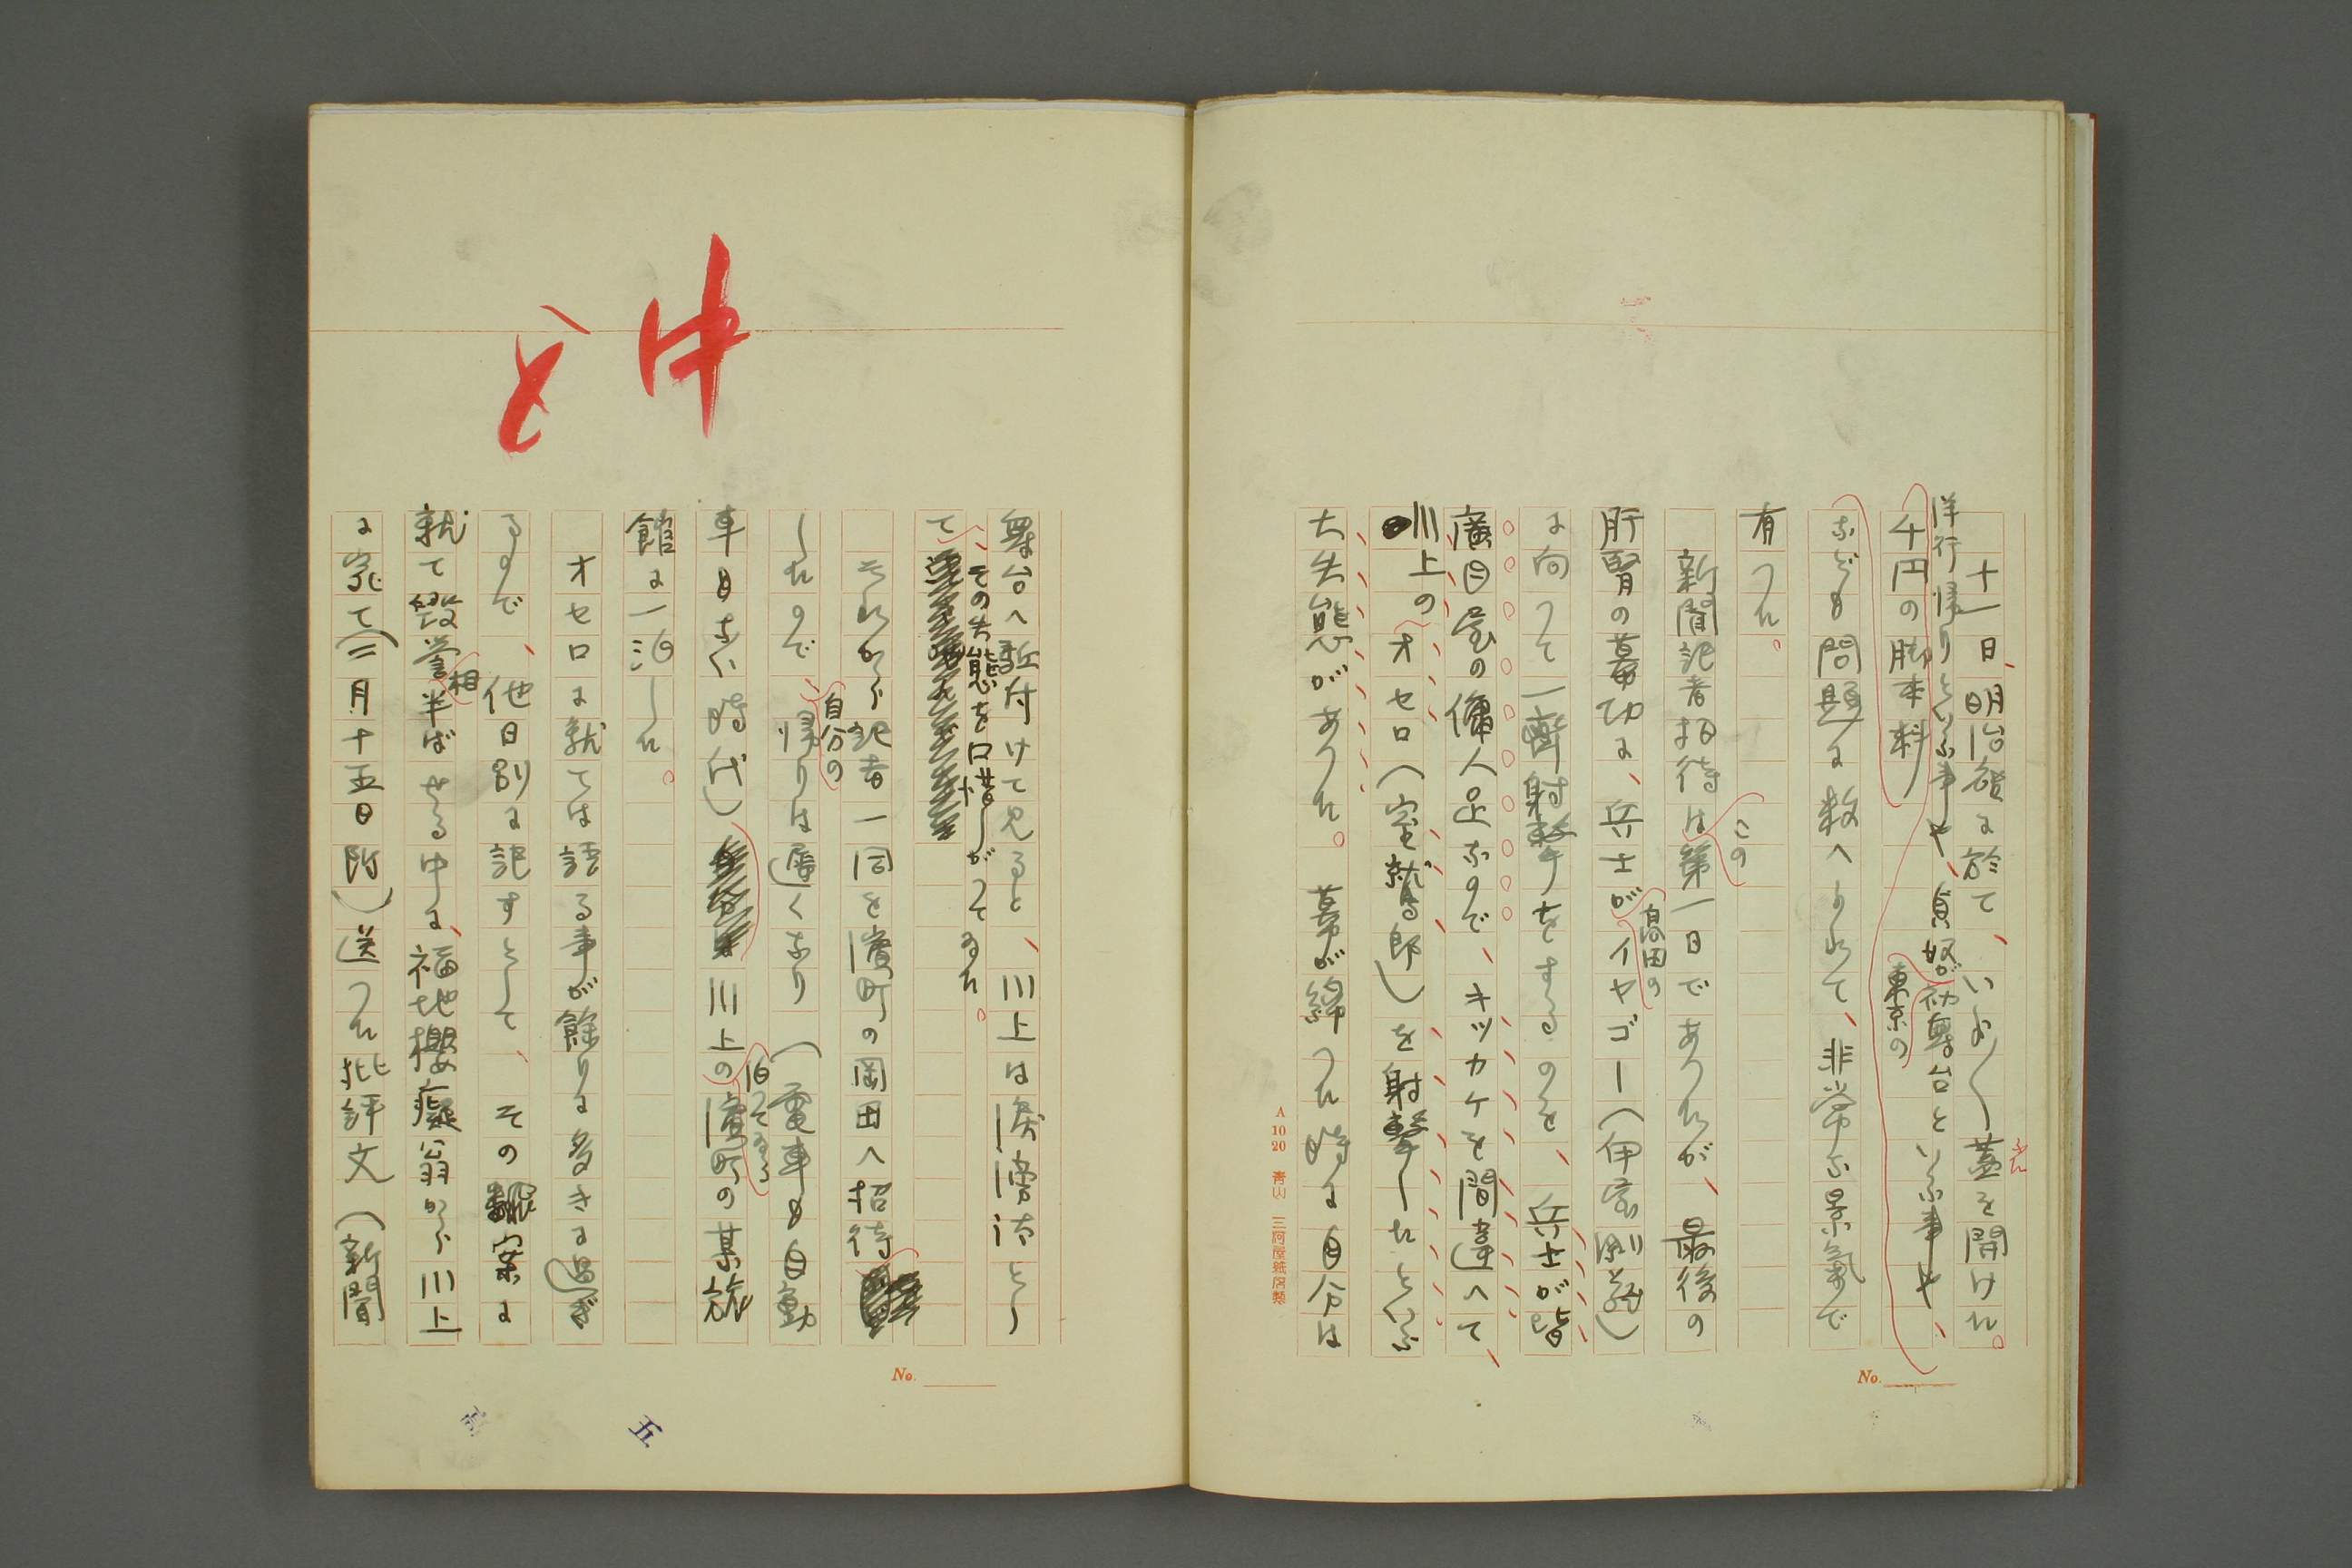 十一日、明治座に於て、いよ〱蓋を開けた。
ふた
洋行帰りといふ事や、貞奴が初舞台といふ事や、
東京の
千円の脚本料
なども問題に数へられて、非常な景氣で
有つた。
新聞記者招待は第一日であつたが、最後の
この
肝腎の幕切に、兵士がイヤゴー(伊屋剛蔵)
高田の
に向つて一齊射撃をするのを、兵士が皆
廣目屋の傭人足なので、キツカケを間違へて
川上のオセロ(室鷲郎)を射撃したといふ
大失態があつた。幕が締つた時に自分は
A 10 20 青山 三河屋紙店製
No.
舞台へ駈付けて見ると、川上は涙滂沱とし
て、その失態を口惜しがつてゐた。
それから記者一同を濱町の岡田へ招待
したので、帰りは遅くなり(電車も自動
自分の
車もない時代)川上の濱町の某旅
泊つてゐる
館に一泊した。
オセロに就ては語る事が餘りに多きに過ぎ
るので、他日別に記すとして、その飜案に
就て毀誉半ばせる中に、福地櫻癡翁から川上
相
に宛て(二月十五日附)送つた批評文(新聞
No.
五
中
と